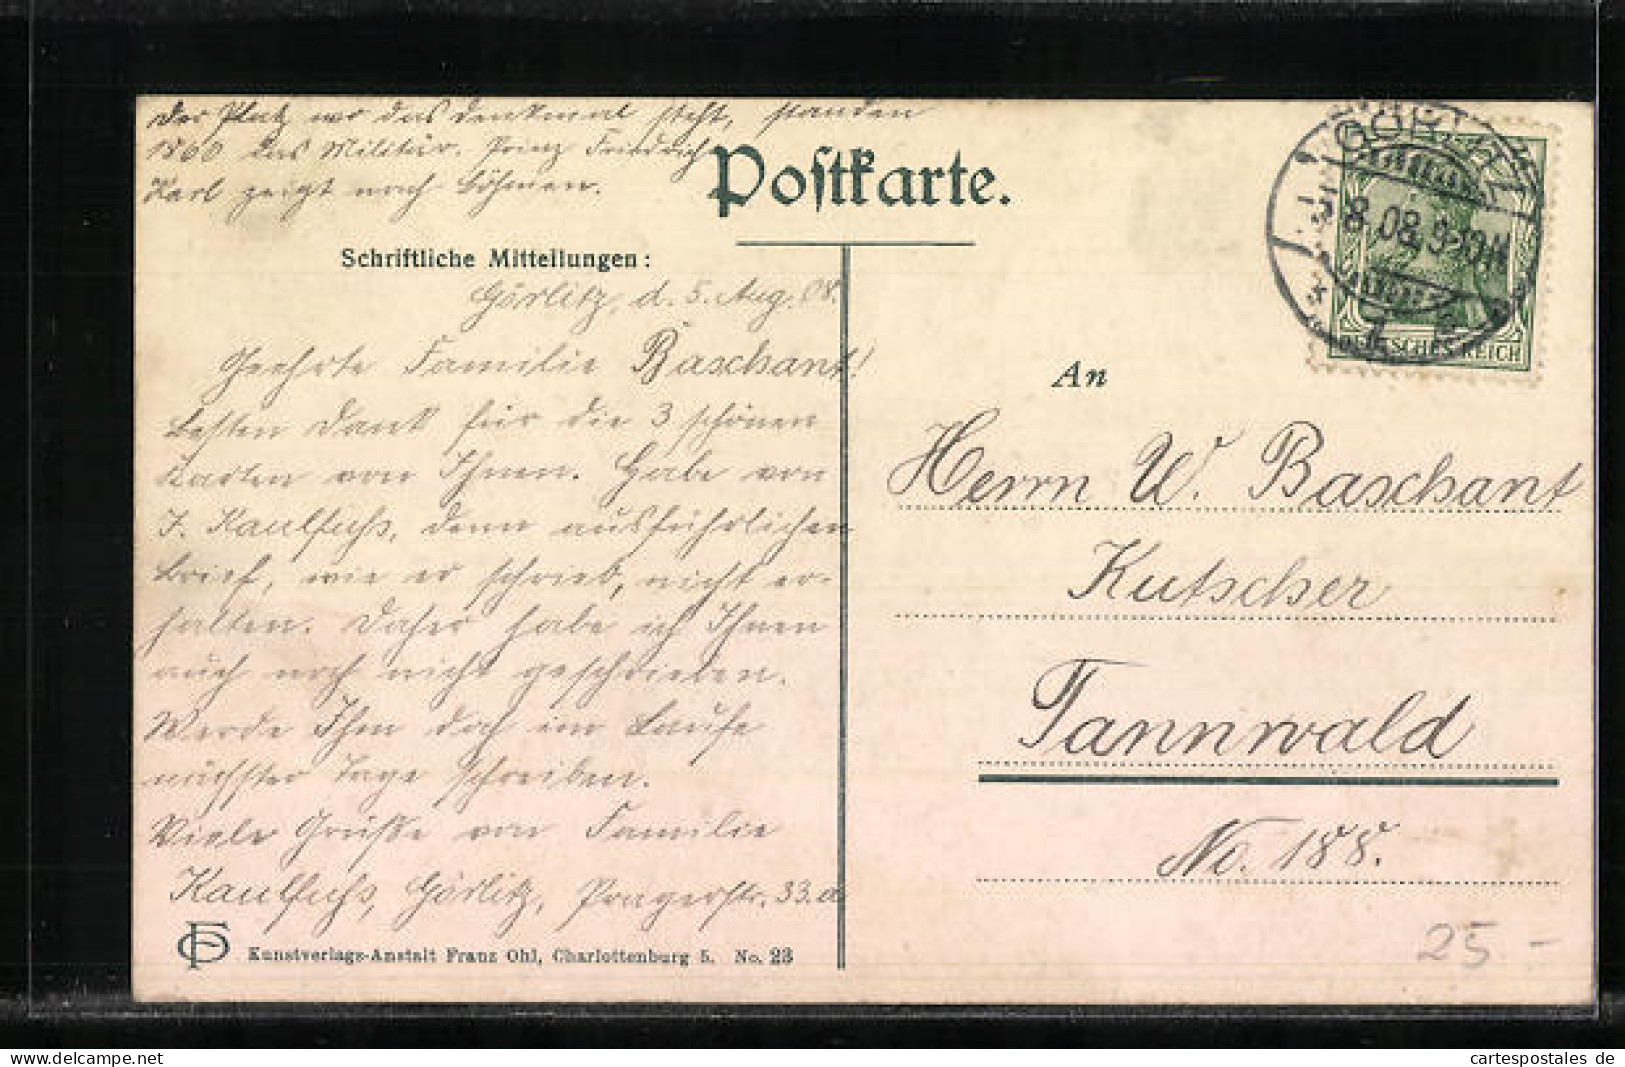 Der Platz wo das Denkmal steht, standen
1866 das Militär. Prinz Friedrich
Karl zeigt nach Böhmen.
Postkarte.
Schriftliche Mitteilungen:
Görlitz, d. 5. Aug. 08.
Geehrte Familie Baschant!
Besten Dank für die 3 schönen
Karten von Ihnen. Habe von
J. Kaulfuss, denn ausführlichen
Brief, wie er schrieb, nicht er-
halten. Daher habe ich Ihnen
auch noch nicht geschrieben.
Werde Ihm doch im Laufe
nächster Tage schreiben.
Viele Grüße von Familie
Kaulfuss, Görlitz, Pragerstr. 33.a
Kunstverlags-Anstalt Franz Ohl, Charlottenburg 5. No. 23
GÖRLITZ
8.08.9-10N
DEUTSCHES REICH
An
Herrn W. Baschant
Kutscher
Tannwald
No. 188.
25.-
cartespostales de
www.delcampe.net